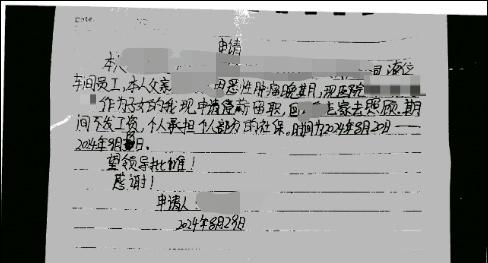 申请
本人
车间员工，本人父亲 因恶性肿瘤晚期，现医院
作为子女的我现申请停薪留职，回 老家去照顾，期
间不发工资，个人承担个人部分的社保。时间为2024年8月29日——
2024年9月 日。
望领导批准！
感谢！
申请人
2024年8月29日